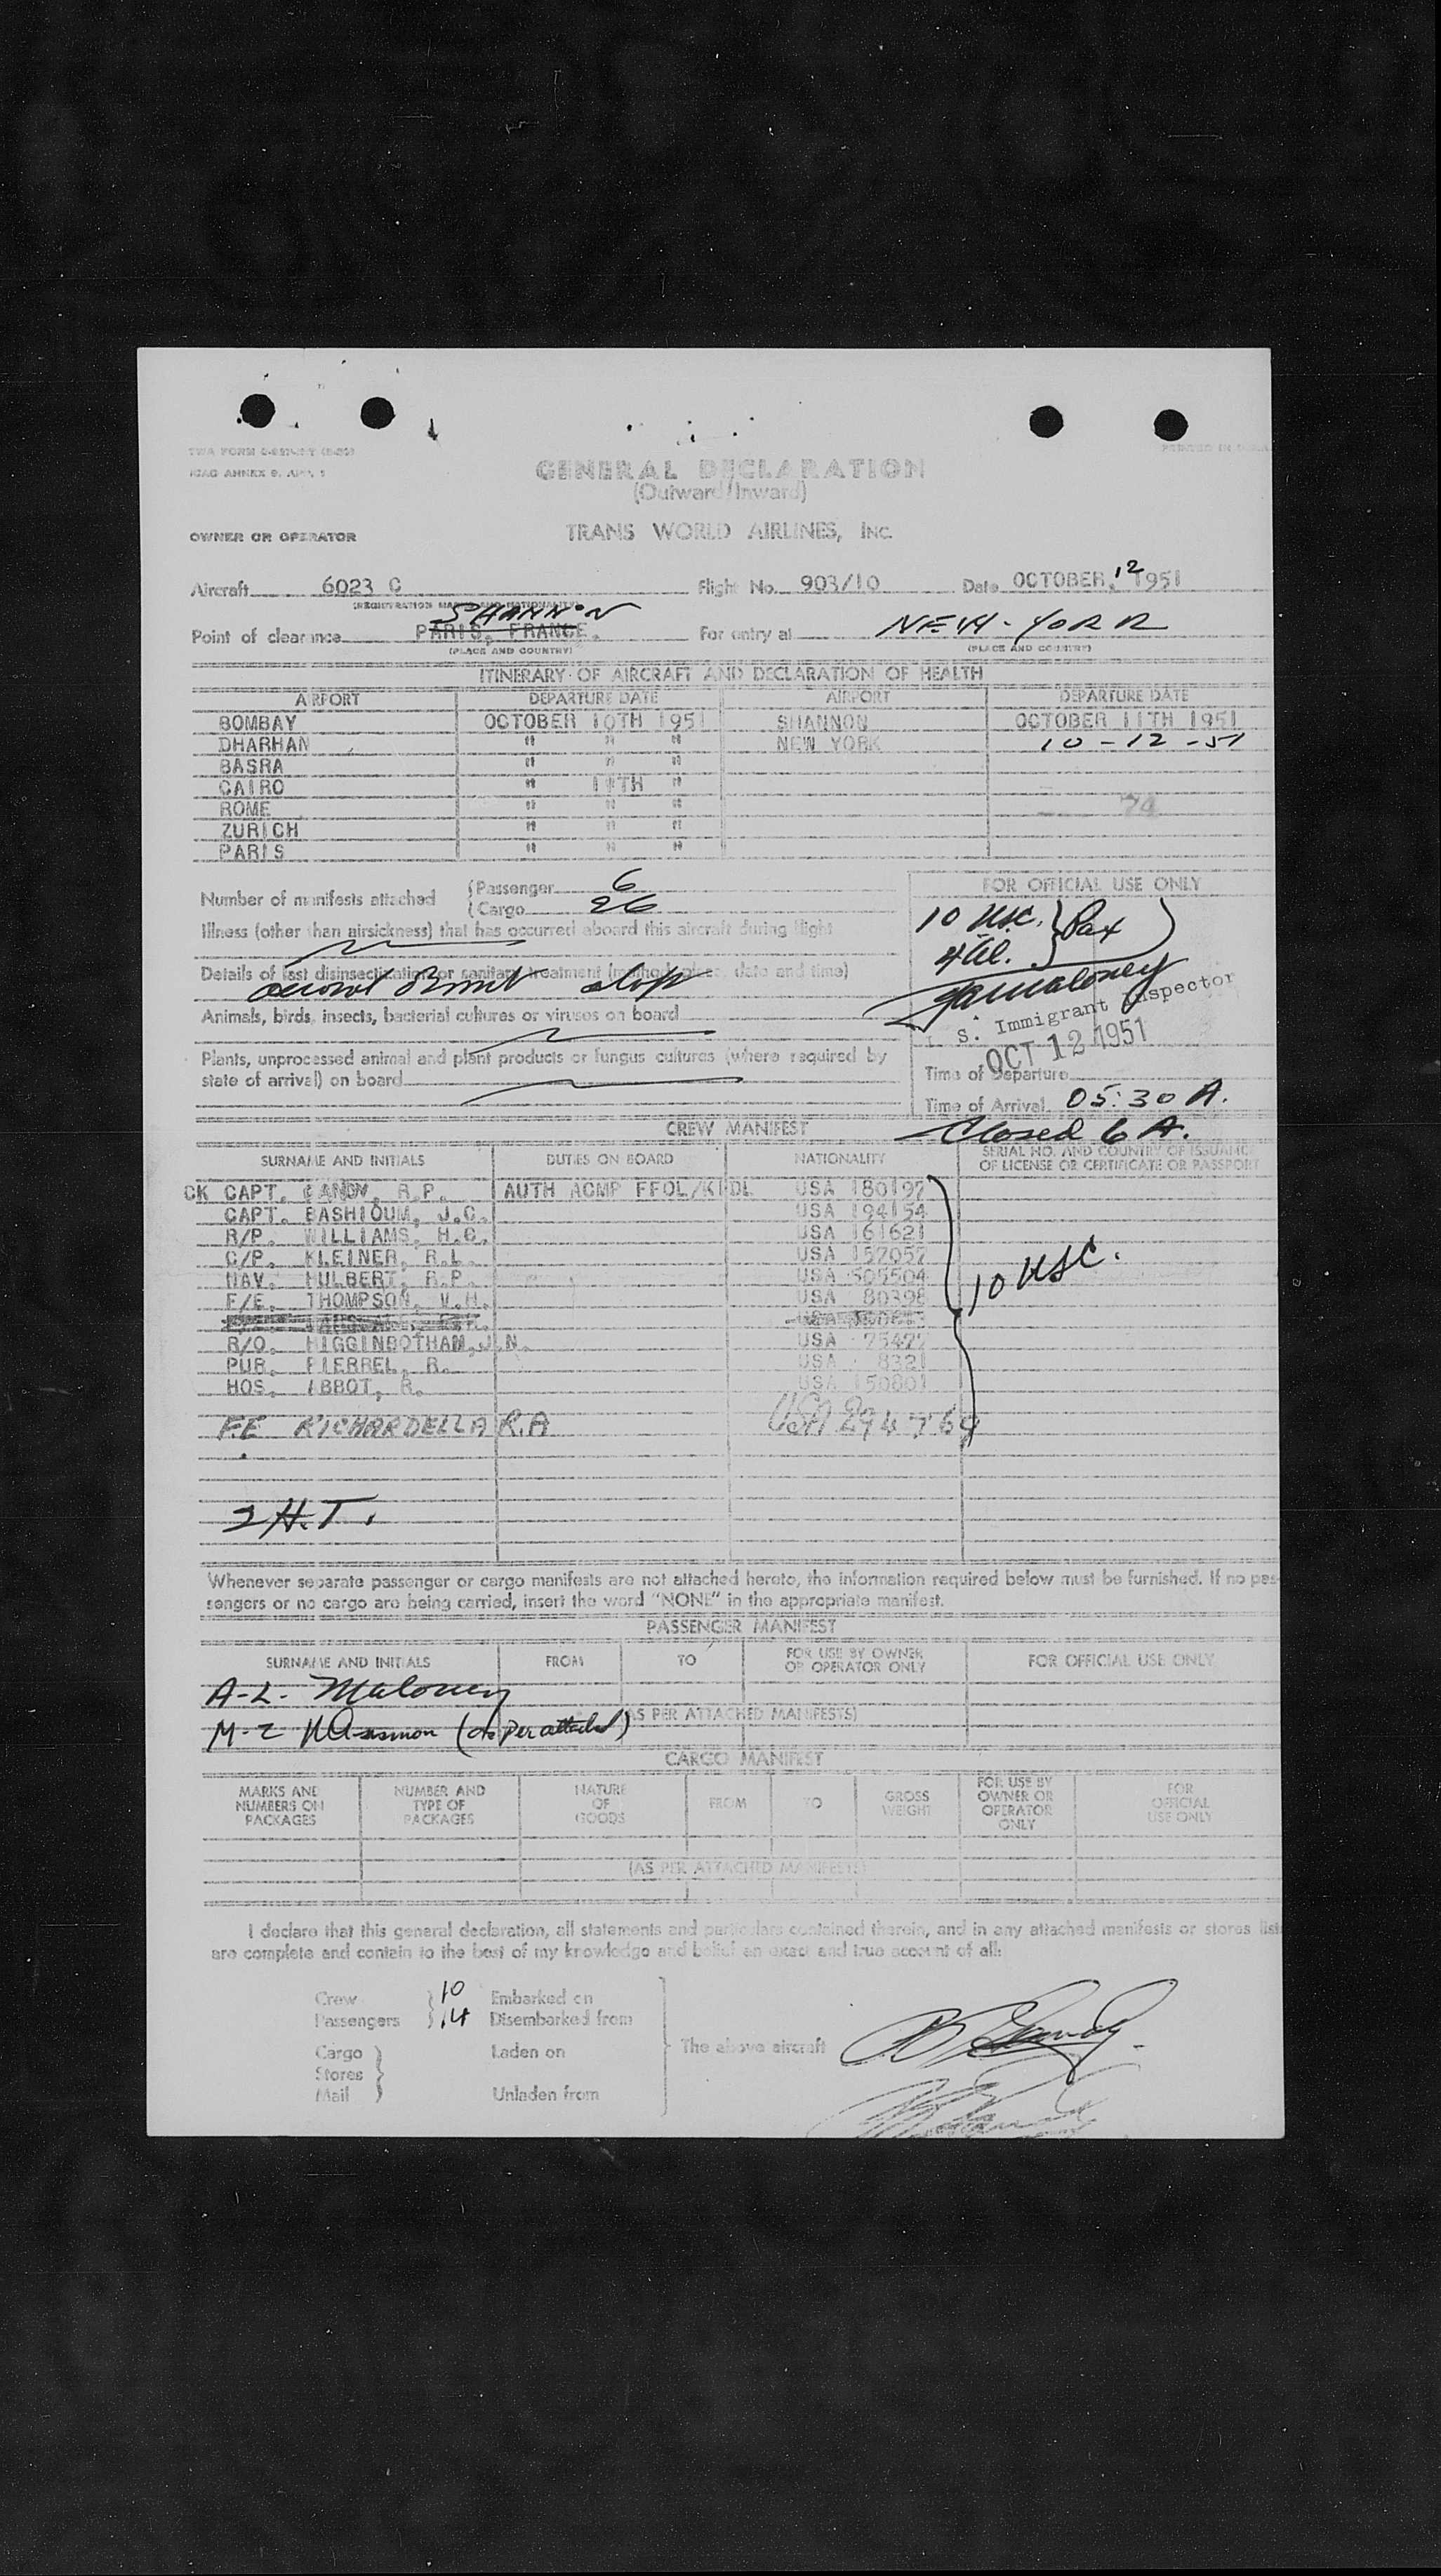 GENERAL DECLARATION
(Outward/Inward)
OWNER OR OPERATOR TRANS WORLD AIRLINES, Inc.
Aircraft 6023 C Flight No. 903/10 Date OCTOBER, 12 1951
(REGISTRATION MARKS AND NATIONALITY)
SHANNON
Point of clearance PARIS, FRANCE. For entry at NEW-YORK
(PLACE AND COUNTRY) (PLACE AND COUNTRY)
ITINERARY OF AIRCRAFT AND DECLARATION OF HEALTH
AIRPORT DEPARTURE DATE AIRPORT DEPARTURE DATE
BOMBAY OCTOBER 10TH 1951 SHANNON OCTOBER 11TH 1951
DHARHAN " " " NEW YORK 10-12-51
BASRA " " "
CAIRO " 11TH "
ROME " " "
ZURICH " " "
PARIS " " "
Number of manifests attached (Passenger 6
(Cargo 26
Illness (other than airsickness) that has occurred aboard this aircraft during flight
Details of last disinsectization or sanitary treatment (method, place, date and time)
Animals, birds, insects, bacterial cultures or viruses on board
Plants, unprocessed animal and plant products or fungus cultures (where required by
state of arrival) on board
FOR OFFICIAL USE ONLY
10 USC. } Pax
4 Al.
S. Immigrant Inspector
OCT 12 1951
Time of Departure
Time of Arrival 05:30 A.
Closed 6 A.
CREW MANIFEST
SURNAME AND INITIALS DUTIES ON BOARD NATIONALITY SERIAL NO. AND COUNTRY OF ISSUANCE
OF LICENSE OR CERTIFICATE OR PASSPORT
CK CAPT. GANDY, R.P. AUTH ACMP FFOL/KFDL USA 180197
CAPT. BASHIOUM, J.C. USA 194154
R/P. WILLIAMS, H.C. USA 161621
C/P. KLEINER, R.L. USA 157057
NAV. HULBERT, R.P. USA 505504
F/E. THOMPSON, V.H. USA 80398
R/O. HIGGINBOTHAM, J.N. USA 75477
PUR. PIERREL, R. USA 8321
HOS. ABBOT, R. USA 150801
10 USC.
F.E RICHARDELLA R.A USA 294764
2 H.T.
Whenever separate passenger or cargo manifests are not attached hereto, the information required below must be furnished. If no pas-
sengers or no cargo are being carried, insert the word "NONE" in the appropriate manifest.
PASSENGER MANIFEST
SURNAME AND INITIALS FROM TO FOR USE BY OWNER OR OPERATOR ONLY FOR OFFICIAL USE ONLY
A-L. Maloney
(AS PER ATTACHED MANIFESTS)
(as per attached)
CARGO MANIFEST
MARKS AND NUMBERS ON PACKAGES NUMBER AND TYPE OF PACKAGES NATURE OF GOODS FROM TO GROSS WEIGHT FOR USE BY OWNER OR OPERATOR ONLY FOR OFFICIAL USE ONLY
(AS PER ATTACHED MANIFESTS)
I declare that this general declaration, all statements and particulars contained therein, and in any attached manifests or stores list
are complete and contain to the best of my knowledge and belief an exact and true account of all:
Crew 10 Embarked on
Passengers 14 Disembarked from
The above aircraft
Cargo Laden on
Stores
Mail Unladen from